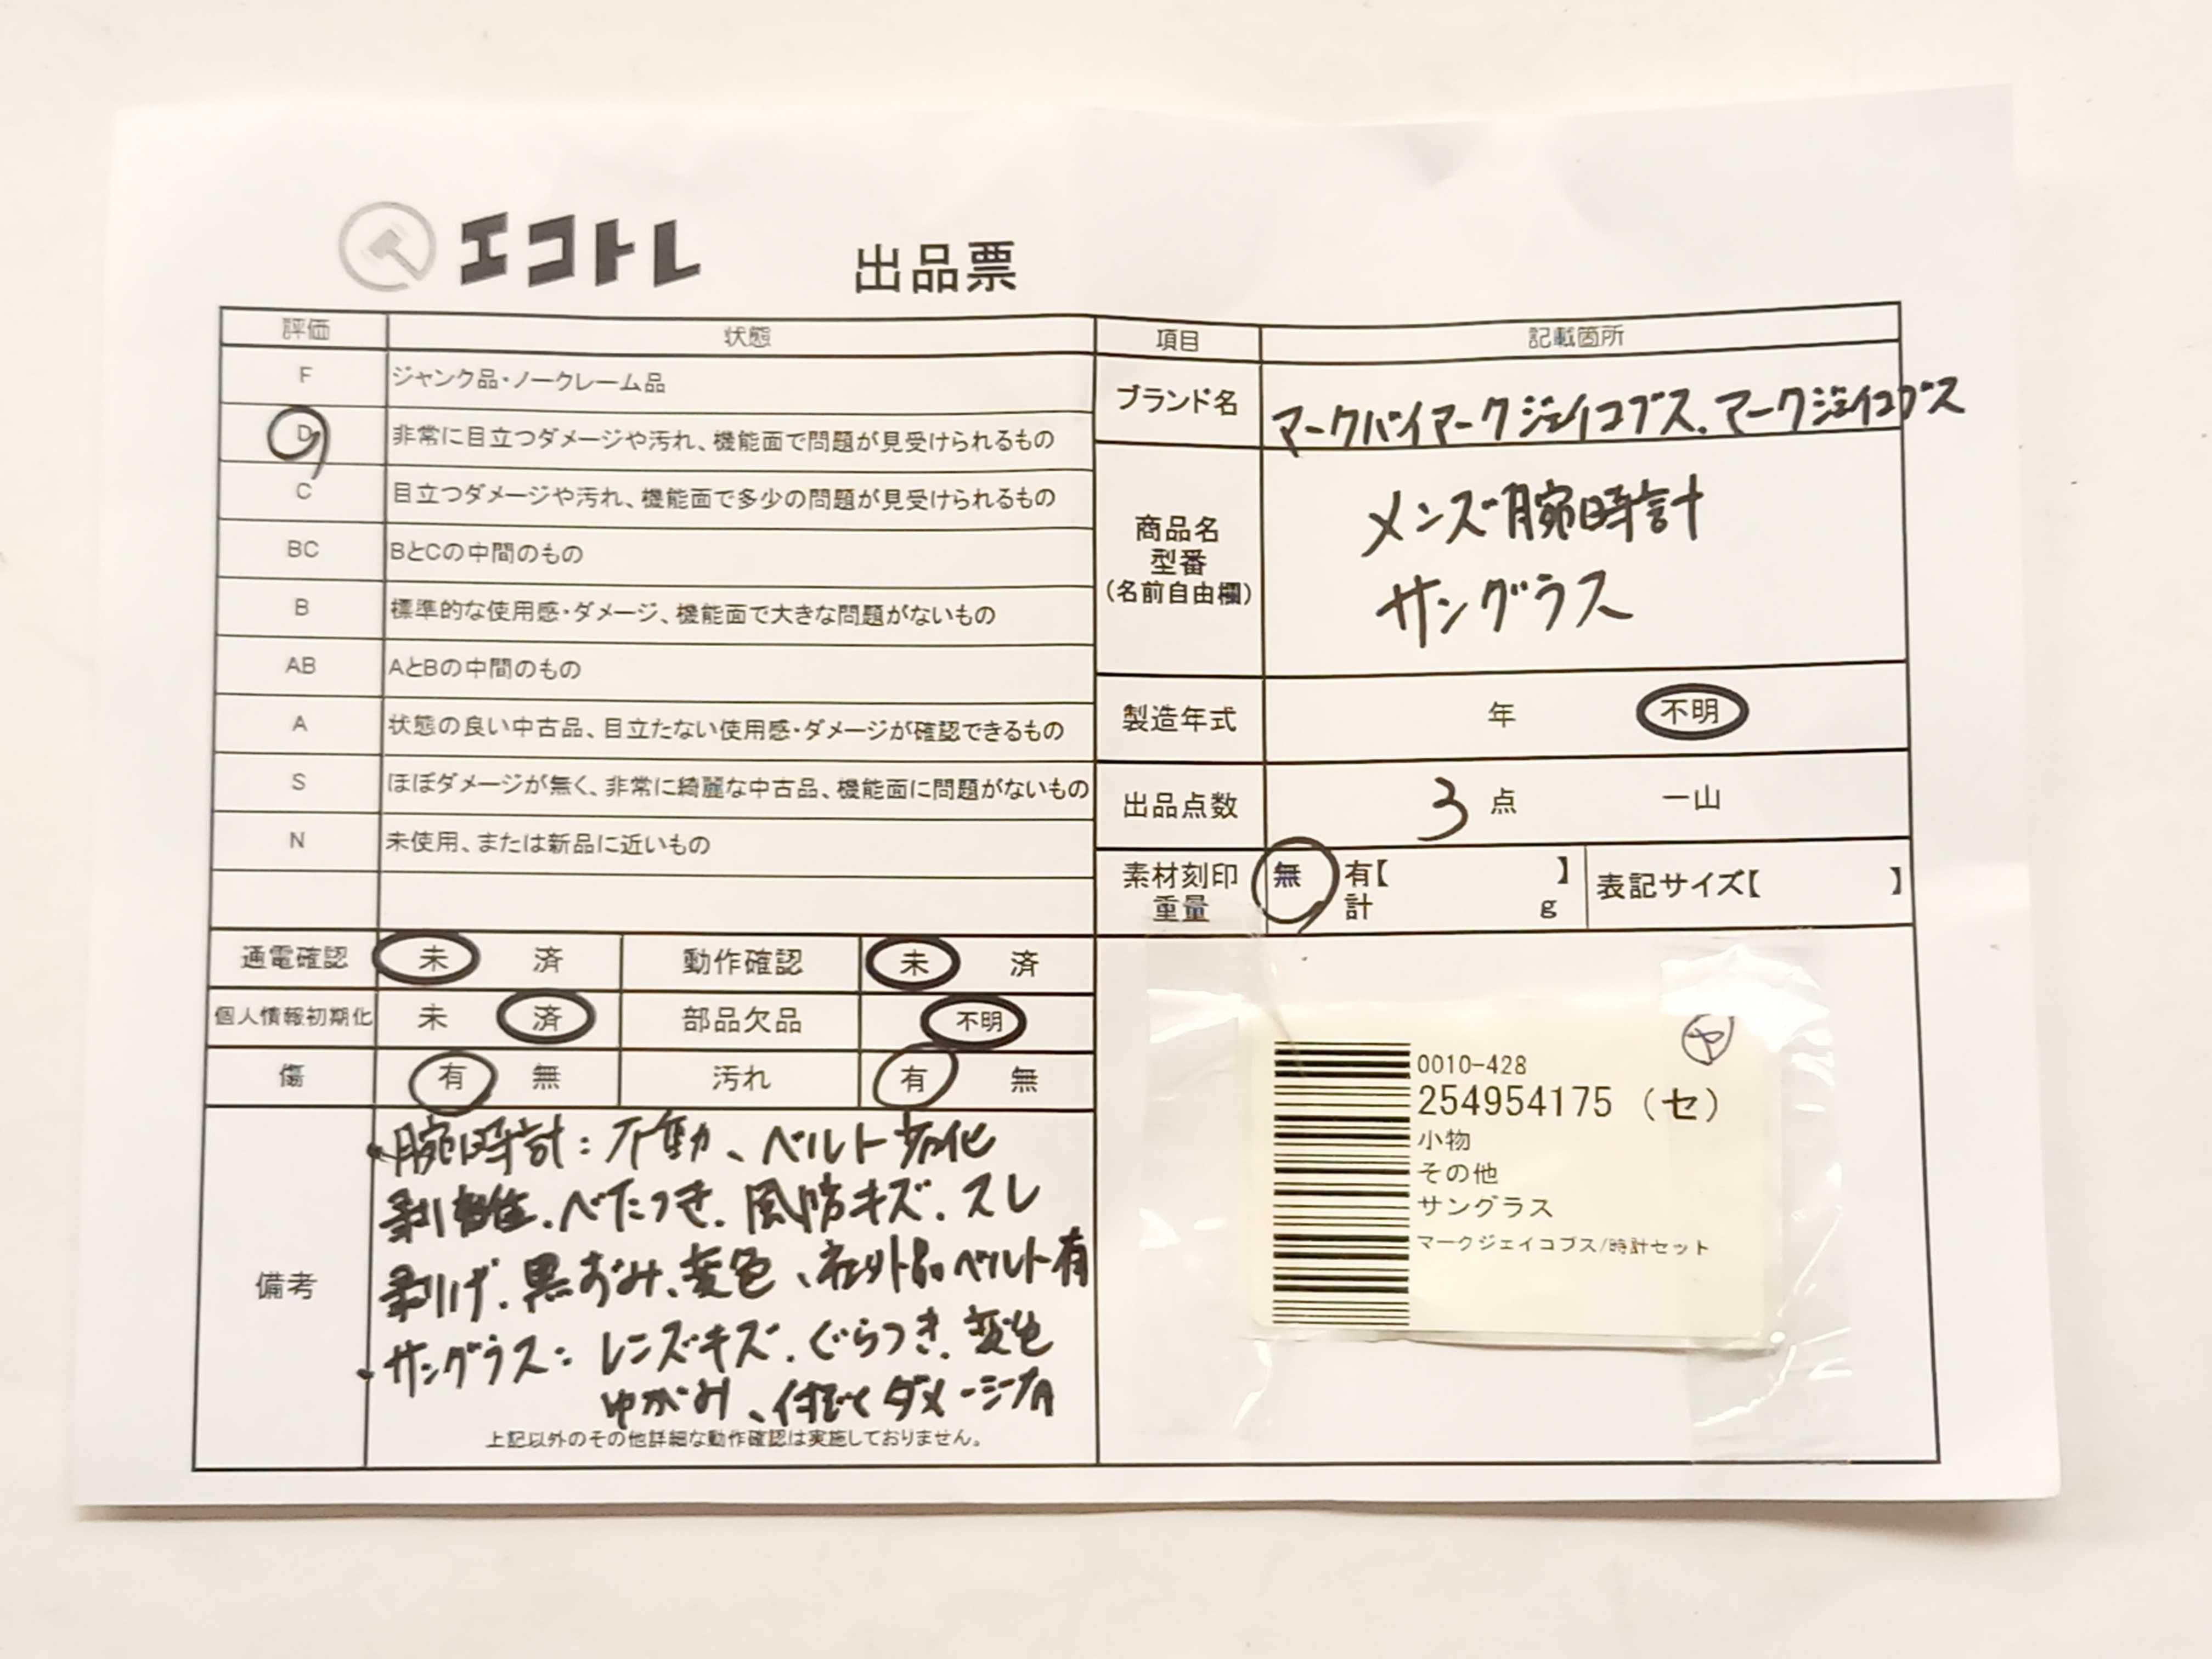 エコトレ 出品票
評価 状態
F ジャンク品・ノークレーム品
D 非常に目立つダメージや汚れ、機能面で問題が見受けられるもの
C 目立つダメージや汚れ、機能面で多少の問題が見受けられるもの
BC BとCの中間のもの
B 標準的な使用感・ダメージ、機能面で大きな問題がないもの
AB AとBの中間のもの
A 状態の良い中古品、目立たない使用感・ダメージが確認できるもの
S ほぼダメージが無く、非常に綺麗な中古品、機能面に問題がないもの
N 未使用、または新品に近いもの
通電確認 未 済 動作確認 未 済
個人情報初期化 未 済 部品欠品 不明
傷 有 無 汚れ 有 無
備考
・腕時計：不動、ベルト劣化
剥離、べたつき、風防キズ、スレ
剥げ、黒ずみ、変色、社外品ベルト有
・サングラス：レンズキズ、ぐらつき、変色
ゆがみ、ダメージ有
上記以外のその他詳細な動作確認は実施しておりません。
項目 記載箇所
ブランド名 マークバイマークジェイコブス、マークジェイコブス
商品名
型番
(名前自由欄)
メンズ腕時計
サングラス
製造年式 年 不明
出品点数 3 点 一山
素材刻印 無 有【 】 表記サイズ【 】
重量 計 g
ヤ
0010-428
254954175 (セ)
小物
その他
サングラス
マークジェイコブス/時計セット